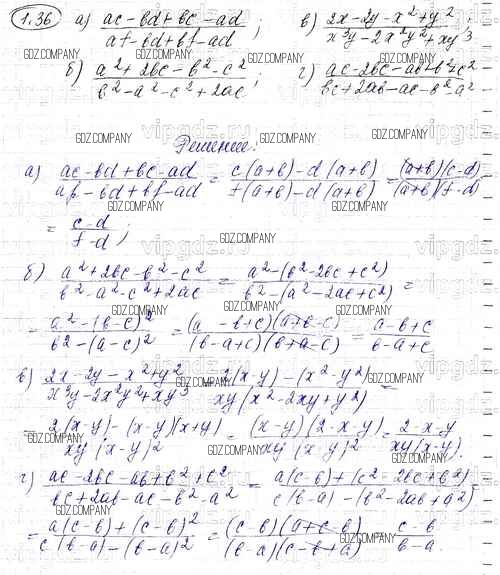 1.36 а) (ac - bd + bc - ad)/(af - bd + bf - ad); в) (2x - 2y - x² + y²)/(x³y - 2x²y² + xy³)
б) (a² + 2bc - b² - c²)/(b² - a² - c² + 2ac); г) (ac - 2bc - ab + b² + c²)/(bc + 2ab - ac - b² - a²)
Решение:
а) (ac - bd + bc - ad)/(af - bd + bf - ad) = (c(a+b) - d(a+b))/(f(a+b) - d(a+b)) = ((a+b)(c-d))/((a+b)(f-d))
= (c-d)/(f-d);
б) (a² + 2bc - b² - c²)/(b² - a² - c² + 2ac) = (a² - (b² - 2bc + c²))/(b² - (a² - 2ac + c²)) =
= (a² - (b-c)²)/(b² - (a-c)²) = ((a - b + c)(a + b - c))/((b - a + c)(b + a - c)) = (a - b + c)/(b - a + c)
в) (2x - 2y - x² + y²)/(x³y - 2x²y² + xy³) = (2(x-y) - (x² - y²))/(xy(x² - 2xy + y²)) =
= (2(x-y) - (x-y)(x+y))/(xy(x-y)²) = ((x-y)(2-x-y))/(xy(x-y)²) = (2-x-y)/(xy(x-y)).
г) (ac - 2bc - ab + b² + c²)/(bc + 2ab - ac - b² - a²) = (a(c-b) + (c² - 2bc + b²))/(c(b-a) - (b² - 2ab + a²)) =
= (a(c-b) + (c-b)²)/(c(b-a) - (b-a)²) = ((c-b)(a+c-b))/((b-a)(c-b+a)) = (c-b)/(b-a).